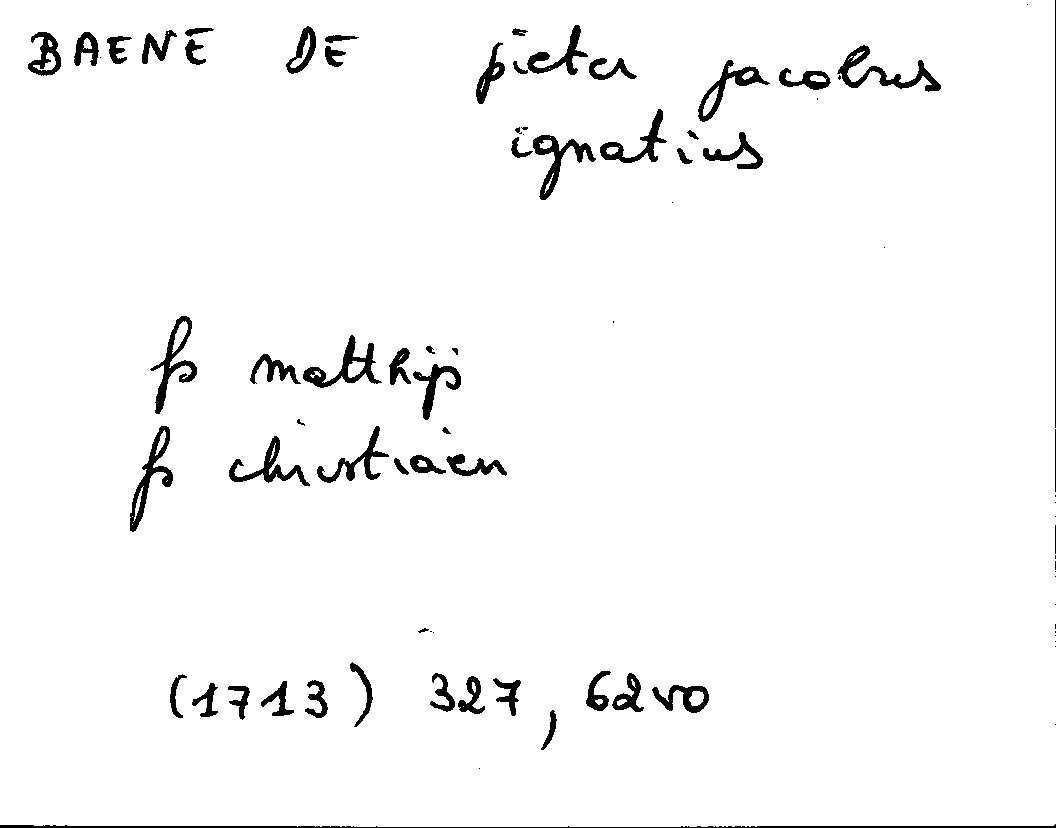 BAENE DE pieter jacobus
ignatius
fs matthijs
fs christiaen
(1713) 327, 62vo